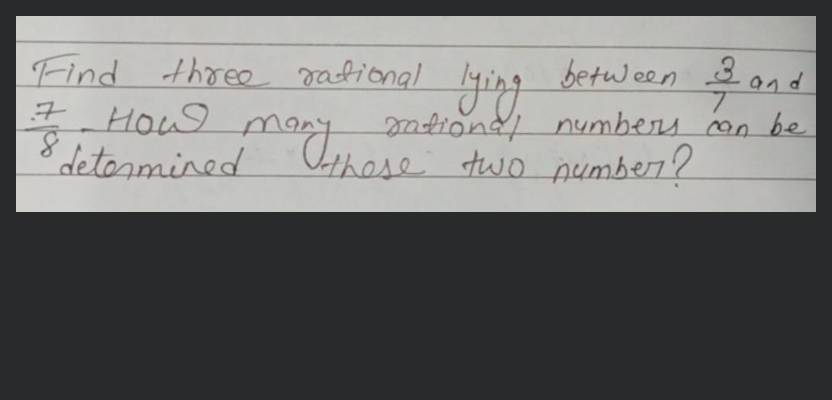 Find three rational lying between 3/7 and
7/8. How many rational numbers can be
determined those two number?